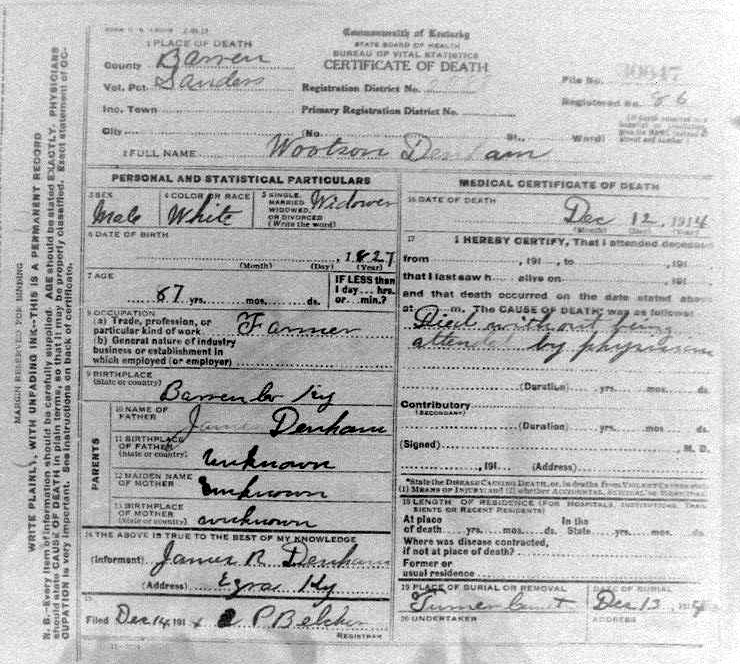 1 PLACE OF DEATH
County Barren
Vot. Pct. Sanders
Inc. Town
City (No. St., Ward)
Commonwealth of Kentucky
STATE BOARD OF HEALTH
BUREAU OF VITAL STATISTICS
CERTIFICATE OF DEATH
Registration District No.
Primary Registration District No.
File No. 30047
Registered No. 86
2 FULL NAME Wootson Denham
PERSONAL AND STATISTICAL PARTICULARS
3 SEX Male
4 COLOR OR RACE White
5 SINGLE, MARRIED WIDOWED, OR DIVORCED (Write the word) Widower
6 DATE OF BIRTH
, 1827
(Month) (Day) (Year)
7 AGE
87 yrs. mos. ds.
IF LESS than
1 day... hrs.
or... min.?
8 OCCUPATION
(a) Trade, profession, or
particular kind of work Farmer
(b) General nature of industry
business or establishment in
which employed (or employer)
9 BIRTHPLACE
(State or country)
Barren Co Ky
PARENTS
10 NAME OF
FATHER James Denham
11 BIRTHPLACE
OF FATHER
(State or country) unknown
12 MAIDEN NAME
OF MOTHER unknown
13 BIRTHPLACE
OF MOTHER
(State or country) unknown
14 THE ABOVE IS TRUE TO THE BEST OF MY KNOWLEDGE
(Informant) James R Denham
(Address) Ky
15
Filed Dec 14 191
REGISTRAR
MEDICAL CERTIFICATE OF DEATH
16 DATE OF DEATH
Dec 12, 1914
(Month) (Day) (Year)
17 I HEREBY CERTIFY, That I attended deceased
from , 191 , to , 191
that I last saw h alive on , 191
and that death occurred on the date stated above
at m. The CAUSE OF DEATH was as follows
Died without being
attended by physician
(Duration) yrs. mos. ds.
Contributory
(SECONDARY)
(Duration) yrs. mos. ds.
(Signed) , M. D.
, 191 (Address)
*State the DISEASE CAUSING DEATH, or, in deaths from VIOLENT CAUSES
(1) MEANS OF INJURY; and (2) whether ACCIDENTAL, SUICIDAL or HOMICIDAL
18 LENGTH OF RESIDENCE (FOR HOSPITALS, INSTITUTIONS, TRANSIENTS OR RECENT RESIDENTS)
At place In the
of death yrs. mos. ds. State yrs. mos. ds.
Where was disease contracted,
if not at place of death?
Former or
usual residence
19 PLACE OF BURIAL OR REMOVAL
DATE OF BURIAL
Dec 13, 1914
20 UNDERTAKER
ADDRESS
MARGIN RESERVED FOR BINDING
WRITE PLAINLY, WITH UNFADING INK--THIS IS A PERMANENT RECORD
N. B.--Every item of information should be carefully supplied. AGE should be stated EXACTLY. PHYSICIANS
should state CAUSE OF DEATH in plain terms, so that it may be properly classified. Exact statement of OC-
CUPATION is very important. See instructions on back of certificate.